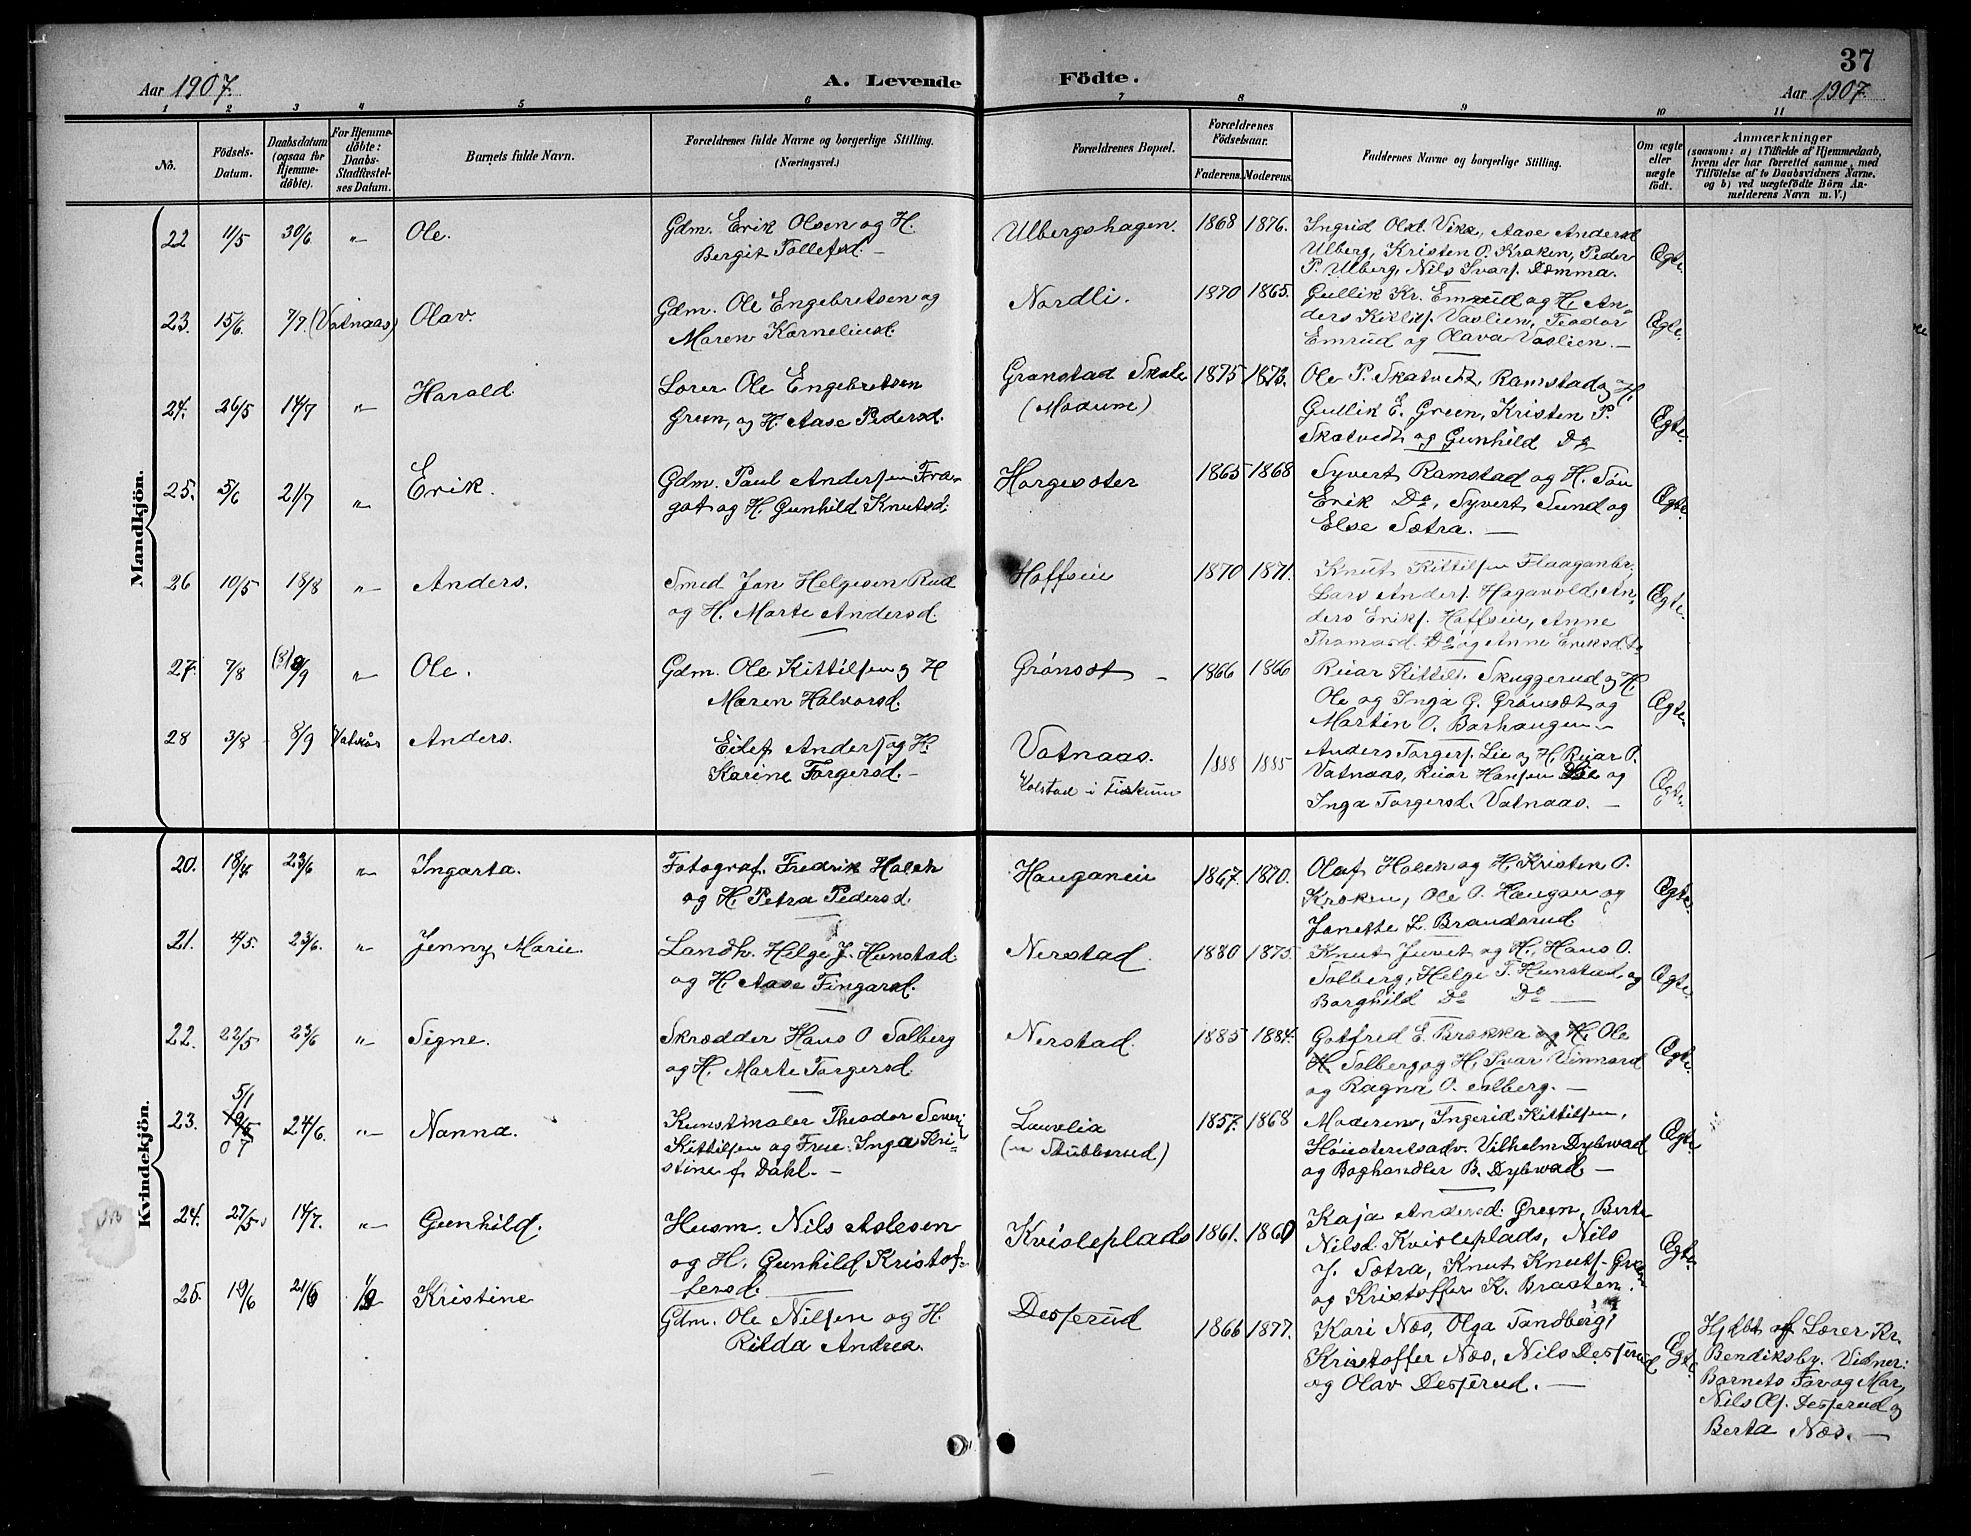 37
Aar 1907.
A. Levende Födte.
Aar 1907.
1 2 3 4 5 6 7 8 9 10 11
No.
Födsels-
Datum.
Daabsdatum
(ogsaa for
Hjemme-
döbte).
For Hjemme-
döbte:
Daabs-
Stadfæstel-
ses Datum.
Barnets fulde Navn.
Forældrenes fulde Navne og borgerlige Stilling.
(Næringsvei.)
Forældrenes Bopæl.
Forældrenes
Födselsaar.
Faderens. Moderens.
Faddernes Navne og borgerlige Stilling.
Om ægte
eller
uægte
födt.
Anmærkninger
(saasom: a) i Tilfælde af Hjemmedaab,
hvem der har forrettet samme, med
Tilföielse af to Daabsvidners Navne.
og b) ved uægtefödte Börn An-
melderens Navn m. V.)
Mandkjön.
22 11/5 30/6 " Ole.
Gdm. Erik Olsen og H.
Bergit Tollefsd. –
Ulbergshagen. 1868 1876.
Ingrid Olsd. Vika, Aase Andersd.
Ulberg, Kristen O. Kroken, Peder
P. Ulberg, Nils Svars. Dæmma.
Ægte.
23. 15/6 7/7 (Vatnaas) Olav.
Gdm. Ole Engebretsen og
Maren Korneliusd.
Nordli. 1870 1865.
Gullik Kr. Emrud og H. An-
ders Kittils. Vaslien, Teodor
Emrud og Olava Vaslien. –
Ægte.
24. 26/5 14/7 " Harald
Lærer Ole Engebretsen
Green, og H. Aase Pedersd.
Granstad Skole
(Modum)
1875 1873.
Ole P. Skatvedt, Ramstad og H.
Gullik E. Green, Kristen P.
Skatvedt og Gunhild Do
Ægte.
25. 5/6 21/7 " Erik.
Gdm. Paul Andersen Fra-
got og H. Gunhild Knutsd.
Horgesæter 1865 1868
Syvert Ramstad og H. Søn
Erik Do, Syvert Sund og
Else Sætra. –
Ægte.
26 10/5 18/8 " Anders.
Smed Jan Helgesen Rud
og H. Marte Andersd.
Hoffsein 1870 1871.
Knut Kittilsen Flaaganbr.,
Lars Anders. Hagavold, An-
ders Eriks. Hoffsein, Anne
Thomasd. Do og Anne Eriksd. Do
Ægte.
27. 7/8 (8) 9/9 " Ole.
Gdm. Ole Kittilsen og H
Maren Halvorsd.
Grønsæt – 1866 1866
Reiar Kittils. Skuggerud og H.
Ole og Inga G. Grønsæt og
Martin O. Borhaugen –
Ægte.
28 3/8 8/9 Vatnås Anders.
Eilef Anders. og H.
Karine Torgersd. –
Vatnaas.
Kolstad i Fiskum
1888 1885
Anders Torgers. Lie og H. Reiar P.
Vatnaas, Reiar Hansen Lie og
Inga Torgersd. Vatnaas. –
Ægte.
Kvindekjön.
20. 18/4 23/6 " Ingarta.
Fotograf. Fredrik Holch
og H. Petra Pedersd.
Hauganeie 1867. 1870.
Olaf Holck og H. Kristen O.
Kroken, Ole O. Haugan og
Janette L. Brandsrud.
Ægte.
21. 4/5. 23/6. " Jenny Marie
Landh. Helge J. Hunstad
og H. Aase Fingarsd.
Nerstad. 1880 1875.
Knut Juvet og H., Hans O.
Solberg, Helge T. Hunstad og
Borghild Do Do –
Ægte.
22. 22/5 23/6 " Signe.
Skrædder Hans O Solberg
og H. Marte Torgersd.
Nerstad. 1885 1884.
Gotfred E. Brekka og H. Ole
H. Solberg og H. Ivar Vinnerd
og Ragna O. Solberg. –
Ægte.
23. 5/1 07 24/6. " Nanna.
Kunstmaler Theodor Severin
Kittilsen og Frue Inga Kri-
stine f. Dahl. –
Lauvlia
(u Stubberud)
1857. 1868
Moderen, Ingerid Kittilsen,
Høiesteretsadv. Vilhelm Dybwad
og Boghandler B. Dybwad –
Ægte
24. 27/5. 14/7. " Gunhild.
Husm. Nils Aslesen
og H. Gunhild Kristof-
fersd.
Kvisleplads 1861. 1860
Kaja Andersd. Green, Berte
Nilsd. Kvisleplads, Nils
J. Sætra, Knut Knuts. Green
og Kristoffer K. Braaten.
Ægte.
25. 19/6 21/6 1/9 Kristine
Gdm. Ole Nilsen og H.
Rilda Andrea.
Desserud 1866 1877.
Kari Næs, Olga Tandberg,
Kristoffer Næs, Nils Desserud
og Olav Desserud. –
Ægte.
Hj.dbt af Lærer Kr.
Bendiksby. Vidner:
Barnets Far og Mor,
Nils Ols. Desserud og
Berta Næs. –